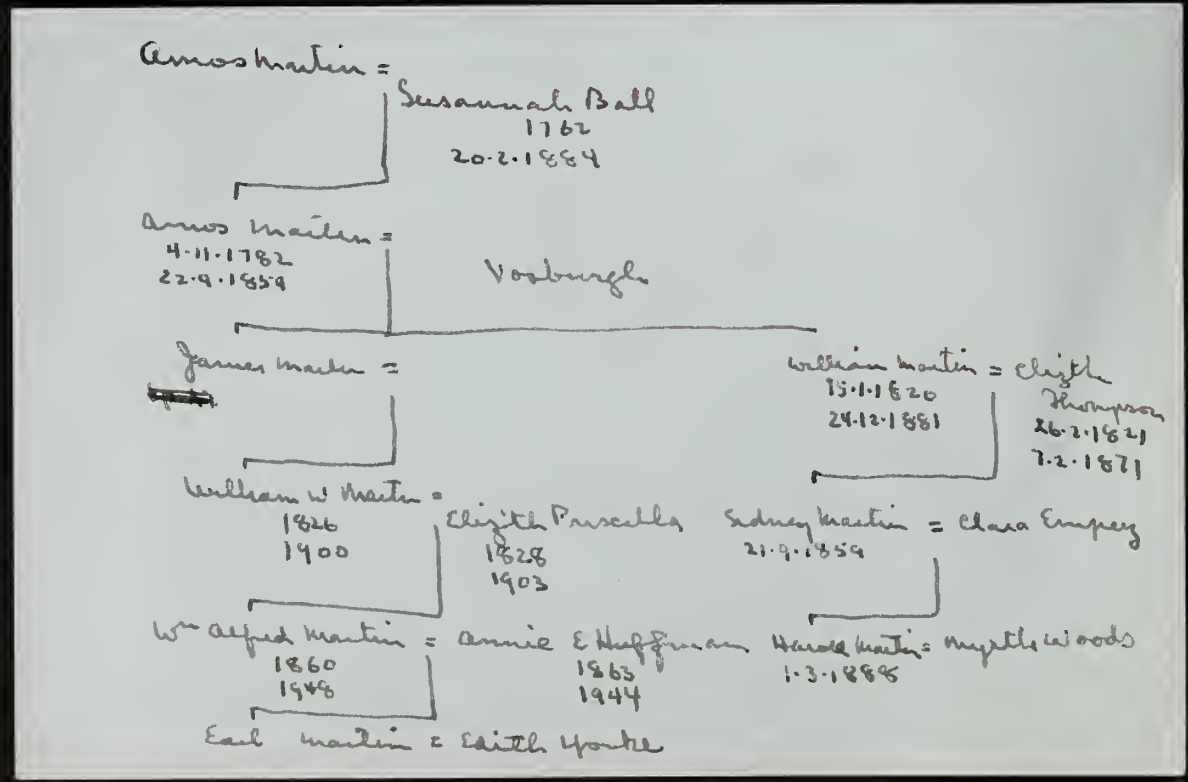 Amos Martin =
Susannah Ball
1762
20.2.1884
Amos Martin =
4.11.1782
22.9.1859
Vosburgh
James Martin =
William Martin = Elizth
15.1.1820
Thompson
24.12.1881
26.2.1821
7.2.1871
William W Martin =
1826
1900
Elizth Priscilla
1828
1903
Sidney Martin = Clara Empey
21.9.1859
Wm Alfred Martin = Annie E Huffman
1860
1948
1863
1944
Harold Martin = Myrtle Woods
1.3.1888
Earl Martin = Edith Yorke